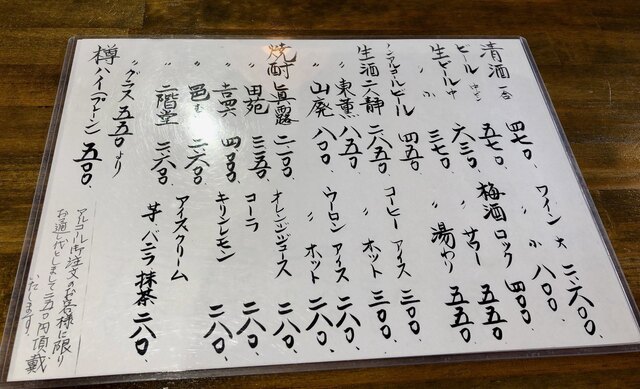 清酒 一合 四七〇、
ビール 中ビン 五七〇
生ビール 中 六三〇
〃 小 三七〇
ノンアルコールビール 四五〇
生酒 六静 二、八五〇
〃 東薫 八五〇
〃 山廃 八〇〇、
焼酎 眞露 二、一〇〇
〃 田苑 三、三五〇
〃 吉四六 四、〇〇〇
〃 邑 二、六〇〇、
〃 二階堂 二、六〇〇、
〃 グラス 五五〇より
樽ハイ(プレーン) 五〇〇、
ワイン 大 二、六〇〇、
〃 小 八〇〇、
梅酒 ロック 四〇〇
〃 サワー 五五〇
〃 湯わり 五五〇
コーヒー アイス 三〇〇
〃 ホット 三〇〇
ウーロン アイス 二八〇
〃 ホット 二八〇
オレンジジュース 二八〇
コーラ 二八〇
キリンレモン 二八〇
アイスクリーム
芋・バニラ・抹茶 二八〇、
アルコール御注文のお客様に限り
お通し代としまして二五〇円頂戴
いたします。